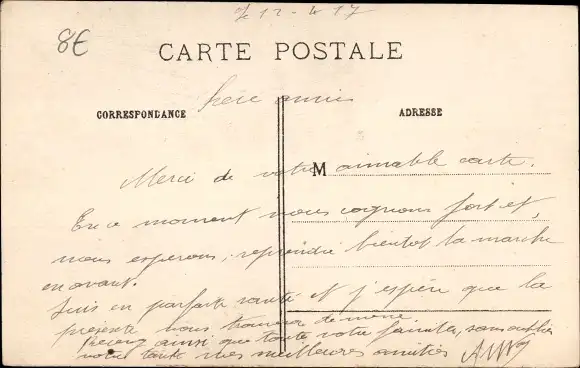 le 12 - 4 17
8€
CARTE POSTALE
CORRESPONDANCE
ADRESSE
M
chere amie
Merci de votre aimable carte.
En ce moment nous cognons fort et,
nous esperons, reprendre bientot la marche
en avant.
Suis en parfaite santé et j'espère que la
présente vous trouvera de même.
Recevez ainsi que toute votre famille, sans oublier
votre tante mes meilleures amitiés